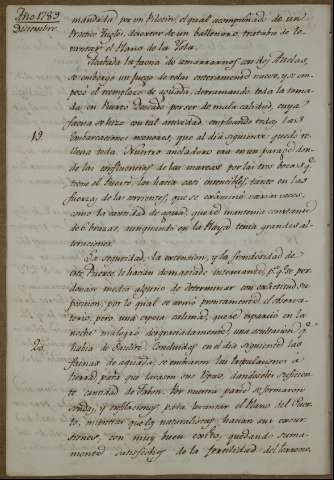 Año 1789
Diciembre.
mandada por un Piloto, el qual acompañado de un
Practico Ingles, desertor de un ballenero, trataba de le-
vantar el Plano de la Isla.
Acabada la faena de amarrarnos con dos Anclas,
se embargó un juego de velas enteramente nuevo, y se em-
pezó el remplazo de aguada, derramando toda la toma-
da en Puerto Deseado por ser de mala calidad, cuya
faena se hizo con tal actividad, empleando en ella las
19. Embarcaciones menores, que al dia siguiente quedó re-
llena toda. Nuestro ancladero era en un parage don-
de las influencias de las mareas por las tres bocas q.e
tiene el Puerto, las hacia casi insensibles, tanto en las
fuerzas de las corrientes, que se examinó varias veces,
como la cantidad de agua, que se mantenia constante
de 6 brazas, aunque en la Playa tenia grandes al-
teraciones.
La seguridad, la extension, y la frondosidad de
este Puerto le hacian demasiado interesante, p.a q.e se per-
donase medio alguno de determinar con exactitud su
posicion; por lo qual se armó prontamente el observa-
torio, pero una espesa calima, que se esparció en la
noche malogró desgraciadamente, una ocultacion q.e
20. habia de Satelite. Concluidas en el dia siguiente las
faenas de aguada, se embiaron las tripulaciones á
tierra, para que lavasen sus ropas, dandoles suficien-
te cantidad de Jabon. Por nuestra parte se formaron
sondas, y enfilaciones para levantar el Plano del Puer-
to, mientras que los naturalistas hacian sus excur-
siones, con muy buen exito, quedando suma-
mente satisfechos de la fertilidad del terreno.